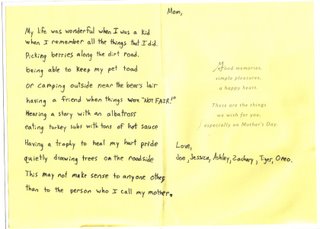 My life was wonderful when I was a kid
when I remember all the things that I did.
Picking berries along the dirt road.
being able to keep my pet toad
or camping outside near the bear's lair
having a friend when things won "NOT FAIR!"
Hearing a story with an albatross
eating turkey subs with tons of hot sauce
Having a trophy to heal my hurt pride
quietly drawing trees on the roadside
This may not make sense to anyone other
than to the person who I call my mother.
Mom,
Good memories,
simple pleasures,
a happy heart.
These are the things
we wish for you,
especially on Mother's Day.
Love,
Joe, Jessica, Ashley, Zachary, Tiger, Oreo.